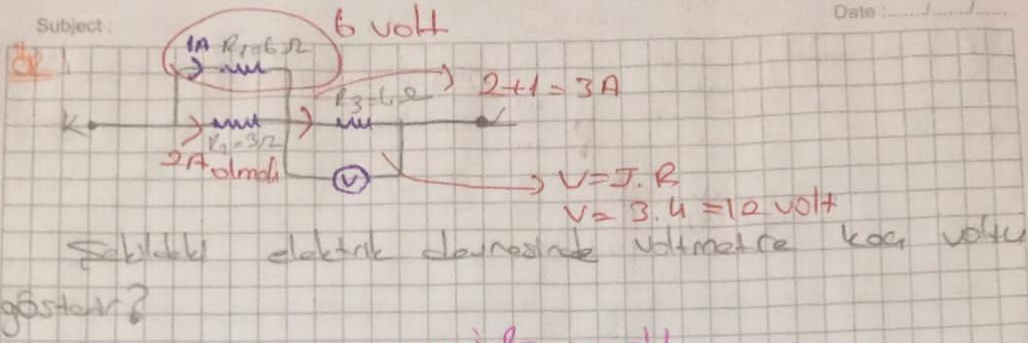 Subject :
Date :....../....../......
ÖR
6 volt
1A R1=6Ω
R3=4Ω
2+1=3A
K
R2=3Ω
2A olmalı
V
V=I.R
V= 3.4 =12 volt
Şekildeki elektrik devresinde voltmetre kaç voltu
gösterir?